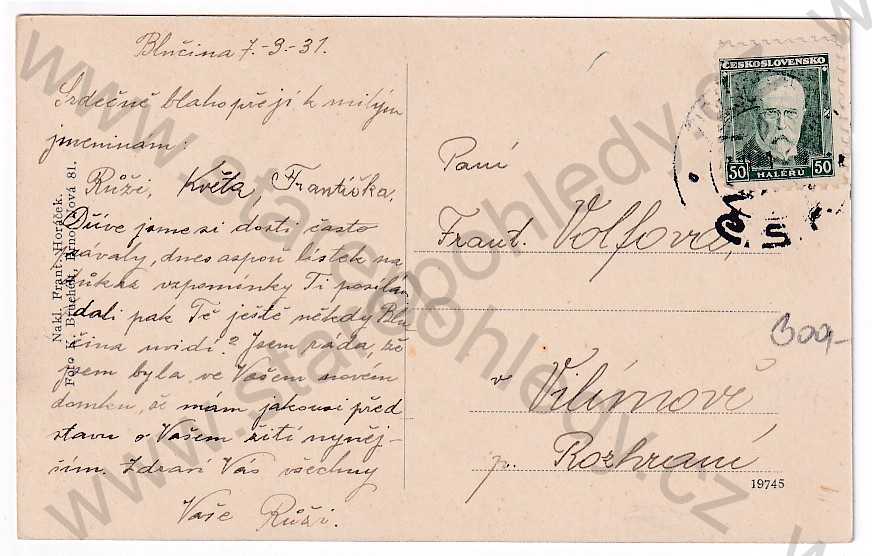 Blučina 7.-9.-31.
Srdečně blahopřejí k milým
jmeninám:
Růži, Květa, Františka.
Dříve jsme si dosti často
dávaly, dnes aspoň lístek na
důkaz vzpomínky Ti posílám
dali pak Tě ještě někdy Blu
čina uvidí? Jsem ráda, že
jsem byla ve Vašem novém
domku, že mám jakousi před
stavu o Vašem žití nyněj-
ším. Zdraví Vás všechny
Vaše Růži.
Nakl. Frant. Horáček.
Foto K. Bruchek, Brno
81.
ČESKOSLOVENSKO
50 HALÉŘŮ 50
Paní
Frant. Volfová,
v Vilímově
p. Rozhraní
300,-
19745
www.starepohledy.cz
www.starepohledy.cz